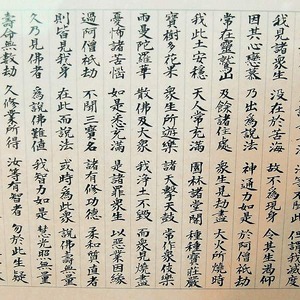 但謂我滅度
我見諸衆生 沒在於苦海 故不為現身 令其生渴仰
因其心戀慕 乃出為說法 神通力如是 於阿僧祇劫
常在靈鷲山 及餘諸住處 衆生見劫盡 大火所燒時
我此土安穩 天人常充滿 園林諸堂閣 種種寶莊嚴
寶樹多花菓 衆生所遊樂 諸天擊天鼓 常作衆伎樂
雨曼陀羅華 散佛及大衆 我淨土不毀 而衆見燒盡
憂怖諸苦惱 如是悉充滿 是諸罪衆生 以惡業因緣
過阿僧祇劫 不聞三寶名 諸有修功德 柔和質直者
則皆見我身 在此而說法 或時為此衆 說佛壽無量
久乃見佛者 為說佛難值 我智力如是 慧光照無量
壽命無數劫 久修業所得 汝等有智者 勿於此生疑